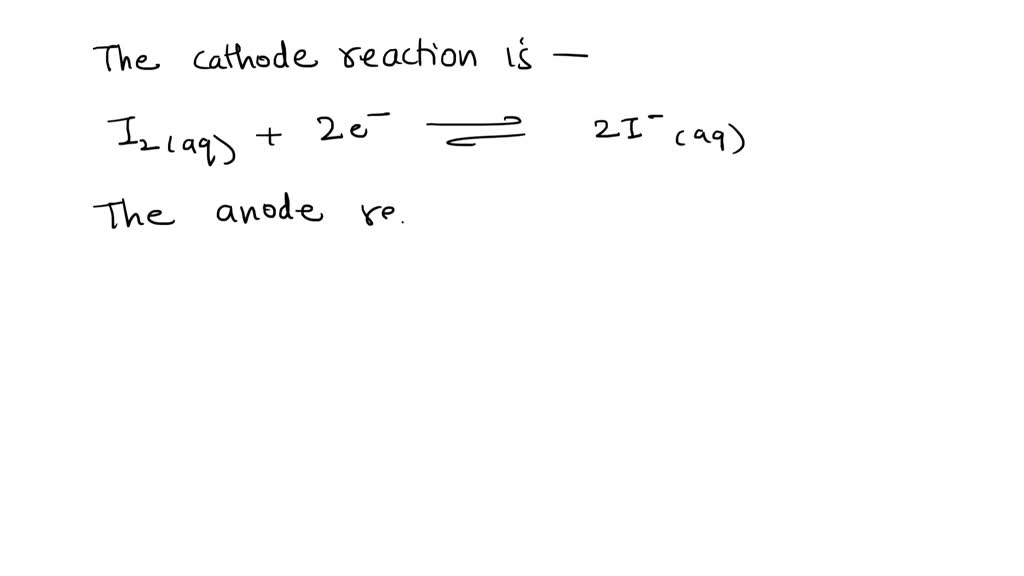 The cathode reaction is —
I₂(aq) + 2e⁻ ⇌ 2I⁻(aq)
The anode re.